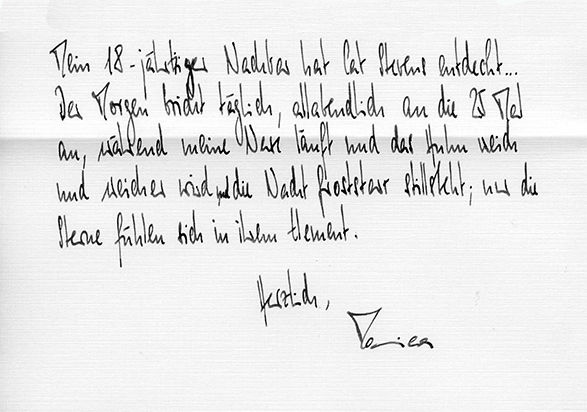 Mein 18-jähriger Nachbar hat Cat Stevens entdeckt...
Der Morgen bricht täglich, allabendlich an die 25 Mal
an, während meine Nase läuft und das Huhn weich
und weicher wird und die Nacht froststarr stillsteht; nur die
Sterne fühlen sich in ihrem Element.
Herzlich,